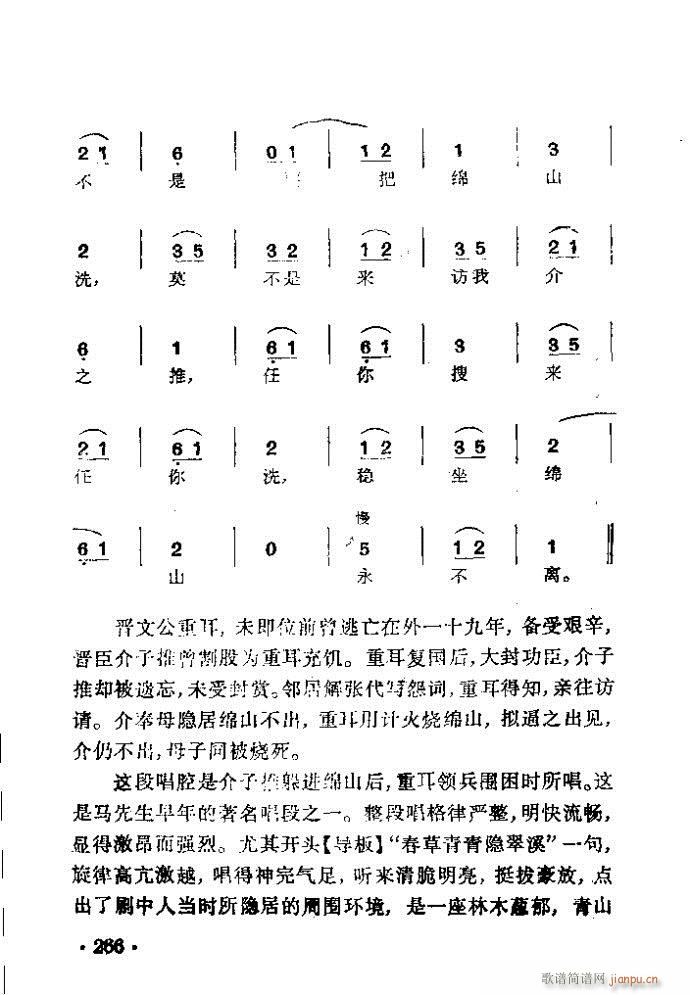 2 1 | 6 | 0 1 | 1 2 | 1 | 3
不 是 把 绵 山
2 | 3 5 | 3 2 | 1 2 | 3 5 | 2 1
洗， 莫 不是 来 访我 介
6 | 1 | 6 1 | 6 1 | 3 | 3 5
之 推， 任 你 搜 来
2 1 | 6 1 | 2 | 1 2 | 3 5 | 2
任 你 洗， 稳 坐 绵
慢
6 1 | 2 | 0 | 5 | 1 2 | 1
山 永 不 离。
晋文公重耳，未即位前曾逃亡在外一十九年，备受艰辛，
晋臣介子推曾割股为重耳充饥。重耳复国后，大封功臣，介子
推却被遗忘，未受封赏。邻居解张代写怨词，重耳得知，亲往访
请。介奉母隐居绵山不出，重耳用计火烧绵山，拟逼之出见，
介仍不出，母子同被烧死。
这段唱腔是介子推躲进绵山后，重耳领兵围困时所唱。这
是马先生早年的著名唱段之一。整段唱格律严整，明快流畅，
显得激昂而强烈。尤其开头【导板】“春草青青隐翠溪”一句，
旋律高亢激越，唱得神完气足，听来清脆明亮，挺拔豪放，点
出了剧中人当时所隐居的周围环境，是一座林木蕴郁，青山
·266·
歌谱简谱网
jianpu.cn